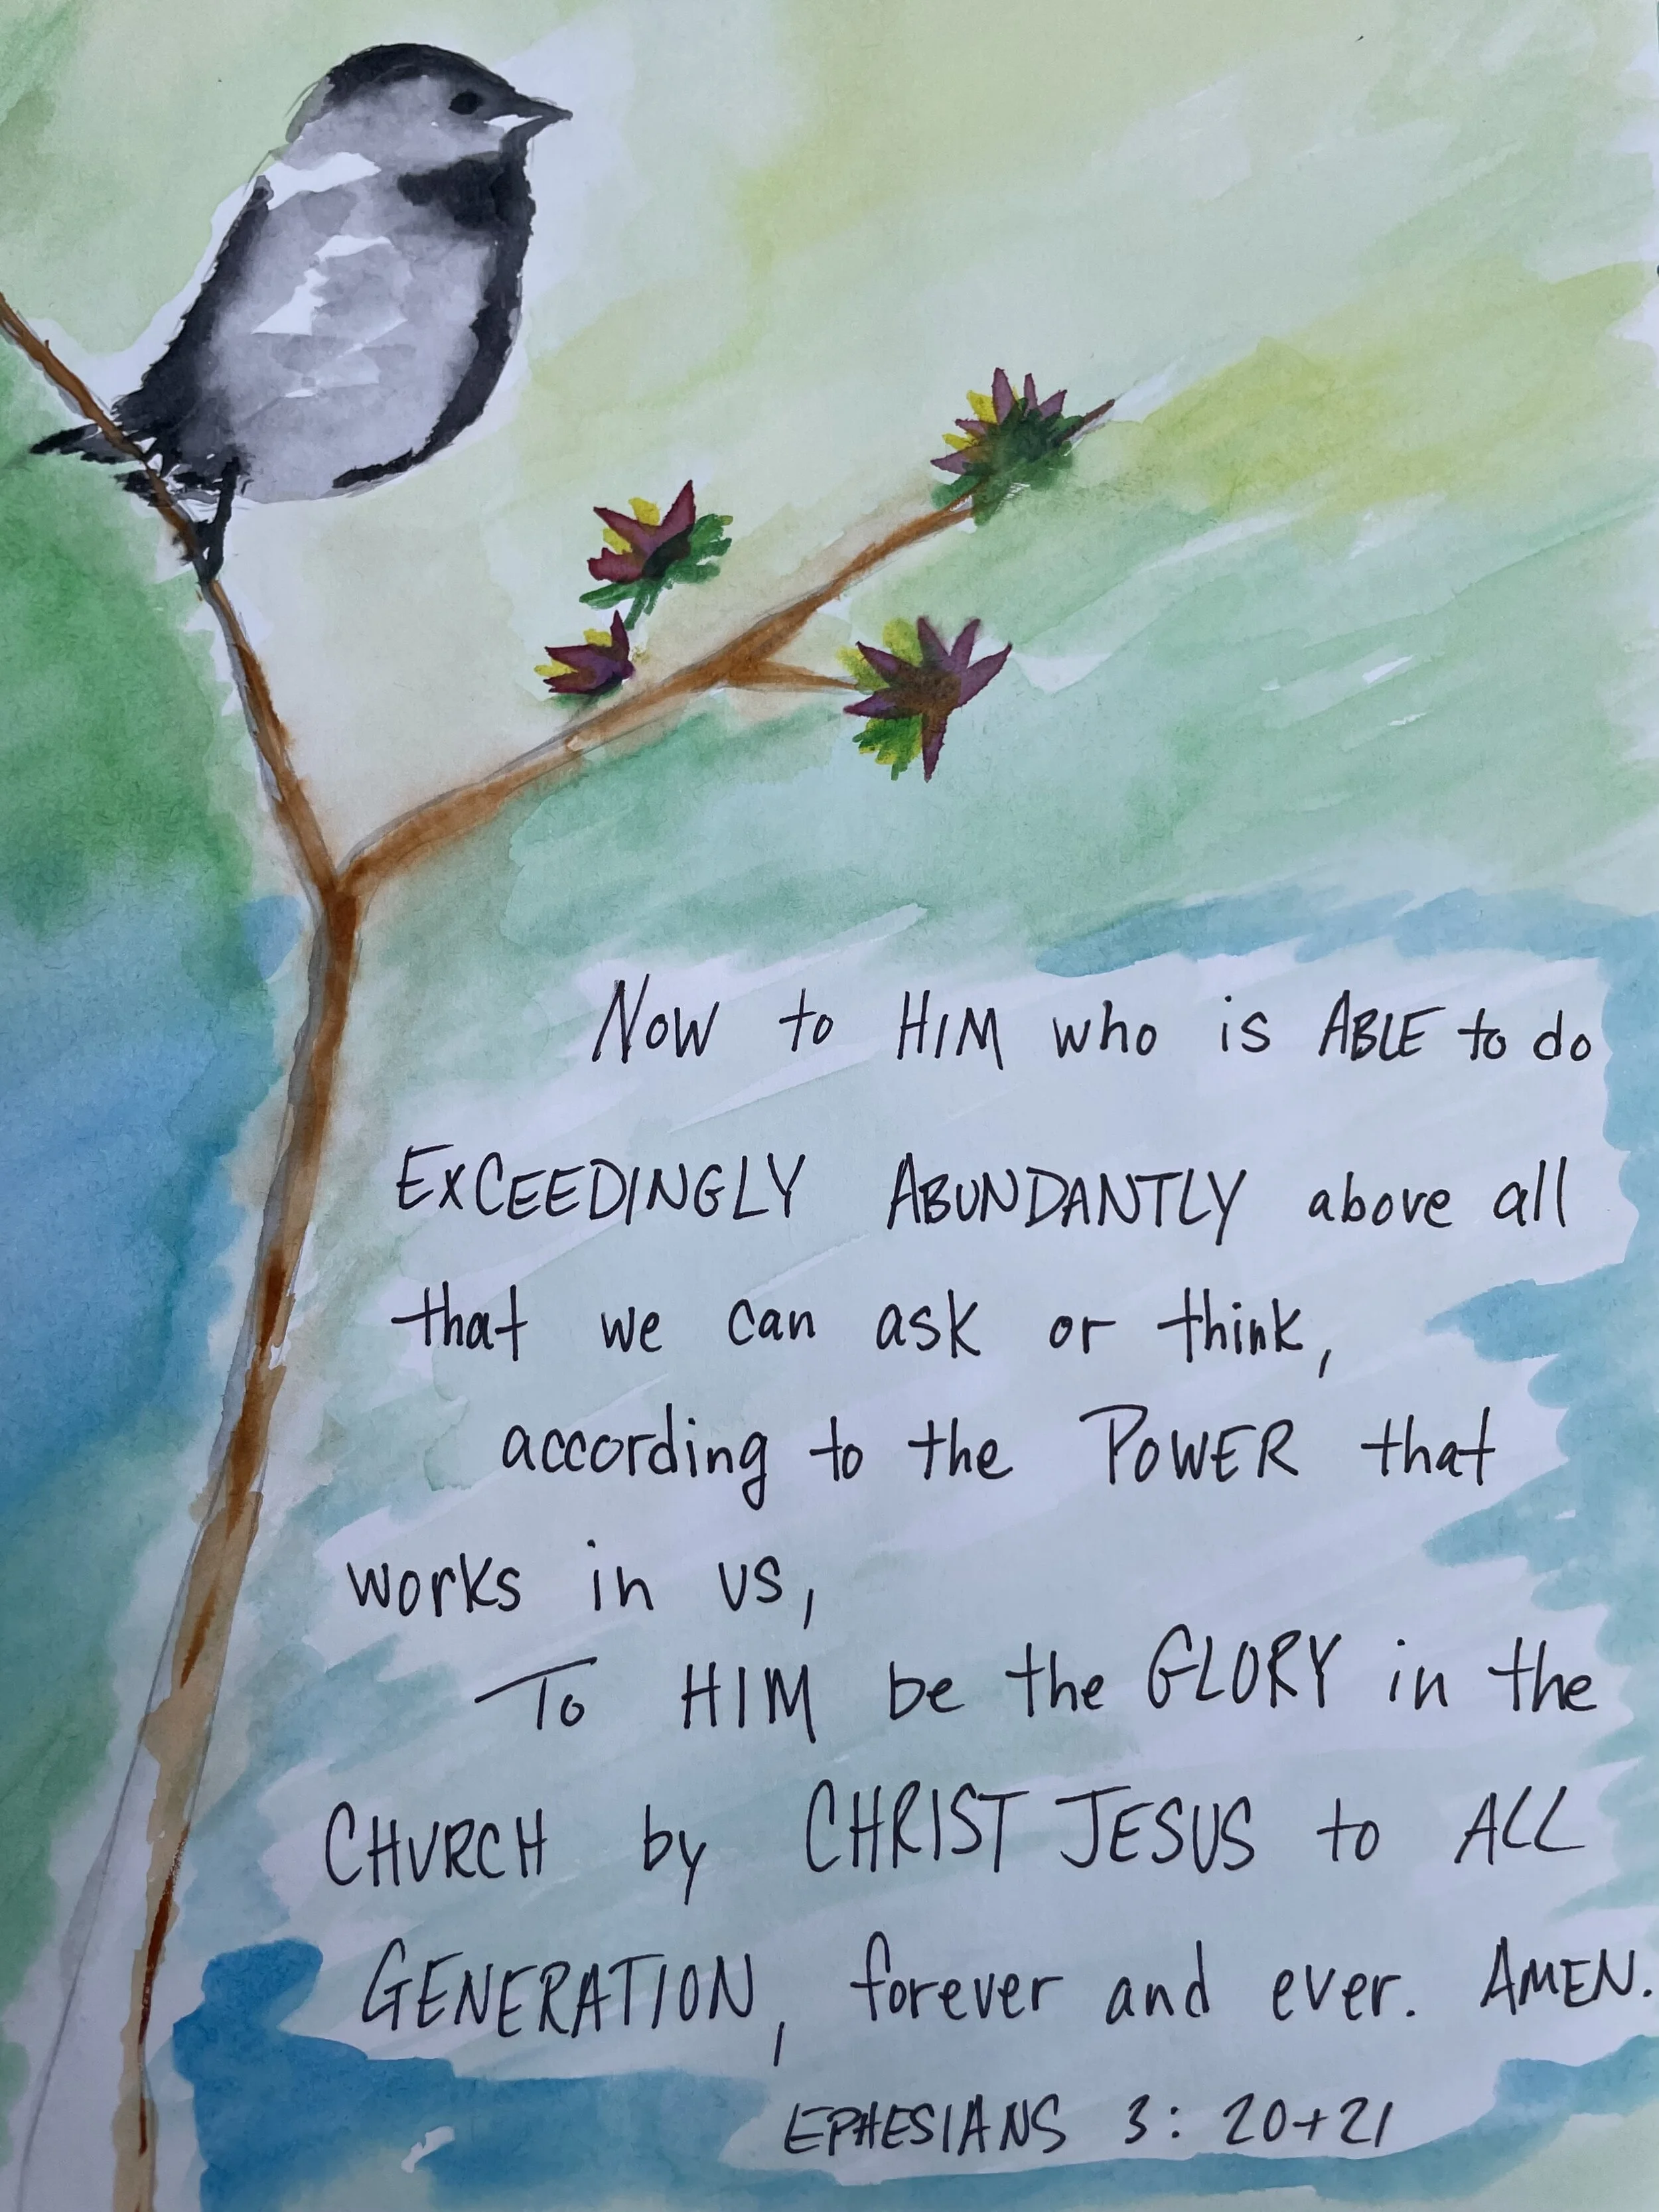 Now to HIM who is ABLE to do
EXCEEDINGLY ABUNDANTLY above all
that we can ask or think,
according to the POWER that
works in us,
To HIM be the GLORY in the
CHURCH by CHRIST JESUS to ALL
GENERATION, forever and ever. AMEN.
EPHESIANS 3: 20+21